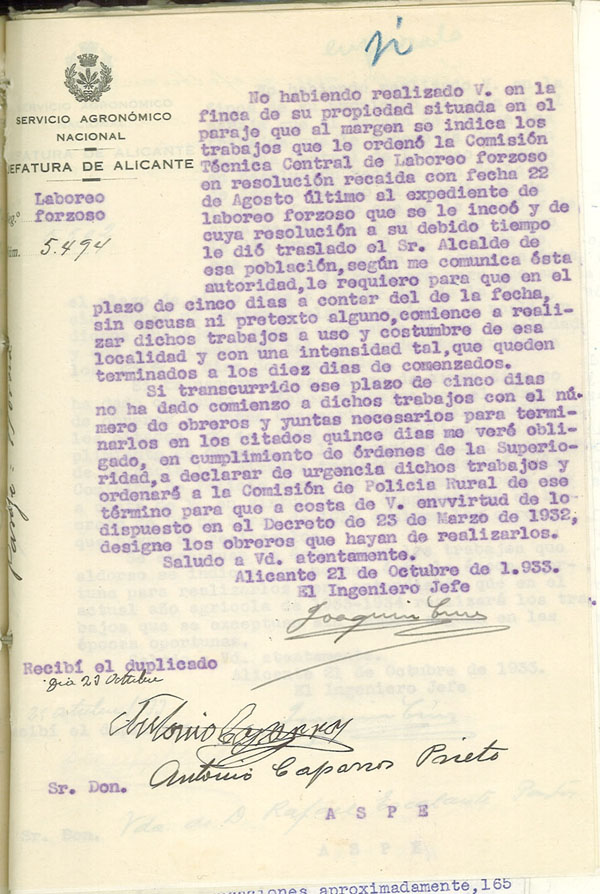 ji
SERVICIO AGRONÓMICO
NACIONAL
JEFATURA DE ALICANTE
Laboreo
forzoso
5.494
No habiendo realizado V. en la
finca de su propiedad situada en el
paraje que al margen se indica los
trabajos que le ordenó la Comisión
Técnica Central de Laboreo forzoso
en resolución recaida con fecha 22
de Agosto último al expediente de
laboreo forzoso que se le incoó y de
cuya resolución a su debido tiempo
le dió traslado el Sr. Alcalde de
esa población,según me comunica ésta
autoridad,le requiero para que en el
plazo de cinco dias a contar del de la fecha,
sin escusa ni pretexto alguno,comience a reali-
zar dichos trabajos a uso y costumbre de esa
localidad y con una intensidad tal,que queden
terminados a los diez dias de comenzados.
Si transcurrido ese plazo de cinco dias
no ha dado comienzo a dichos trabajos con el nú-
mero de obreros y yuntas necesarios para termi-
narlos en los citados quince dias me veré obli-
gado, en cumplimiento de órdenes de la Superio-
ridad,a declarar de urgencia dichos trabajos y
ordenaré a la Comisión de Policia Rural de ese
término para que a costa de V. envvirtud de lo
dispuesto en el Decreto de 23 de Marzo de 1932,
designe los obreros que hayan de realizarlos.
Saludo a Vd. atentamente.
Alicante 21 de Octubre de 1.933.
El Ingeniero Jefe
Joaquin
Recibí el duplicado
Dia 29 Octubre
Antonio Caparros
Antonio Caparros Prieto
Sr. Don.
A S P E
aproximadamente,165